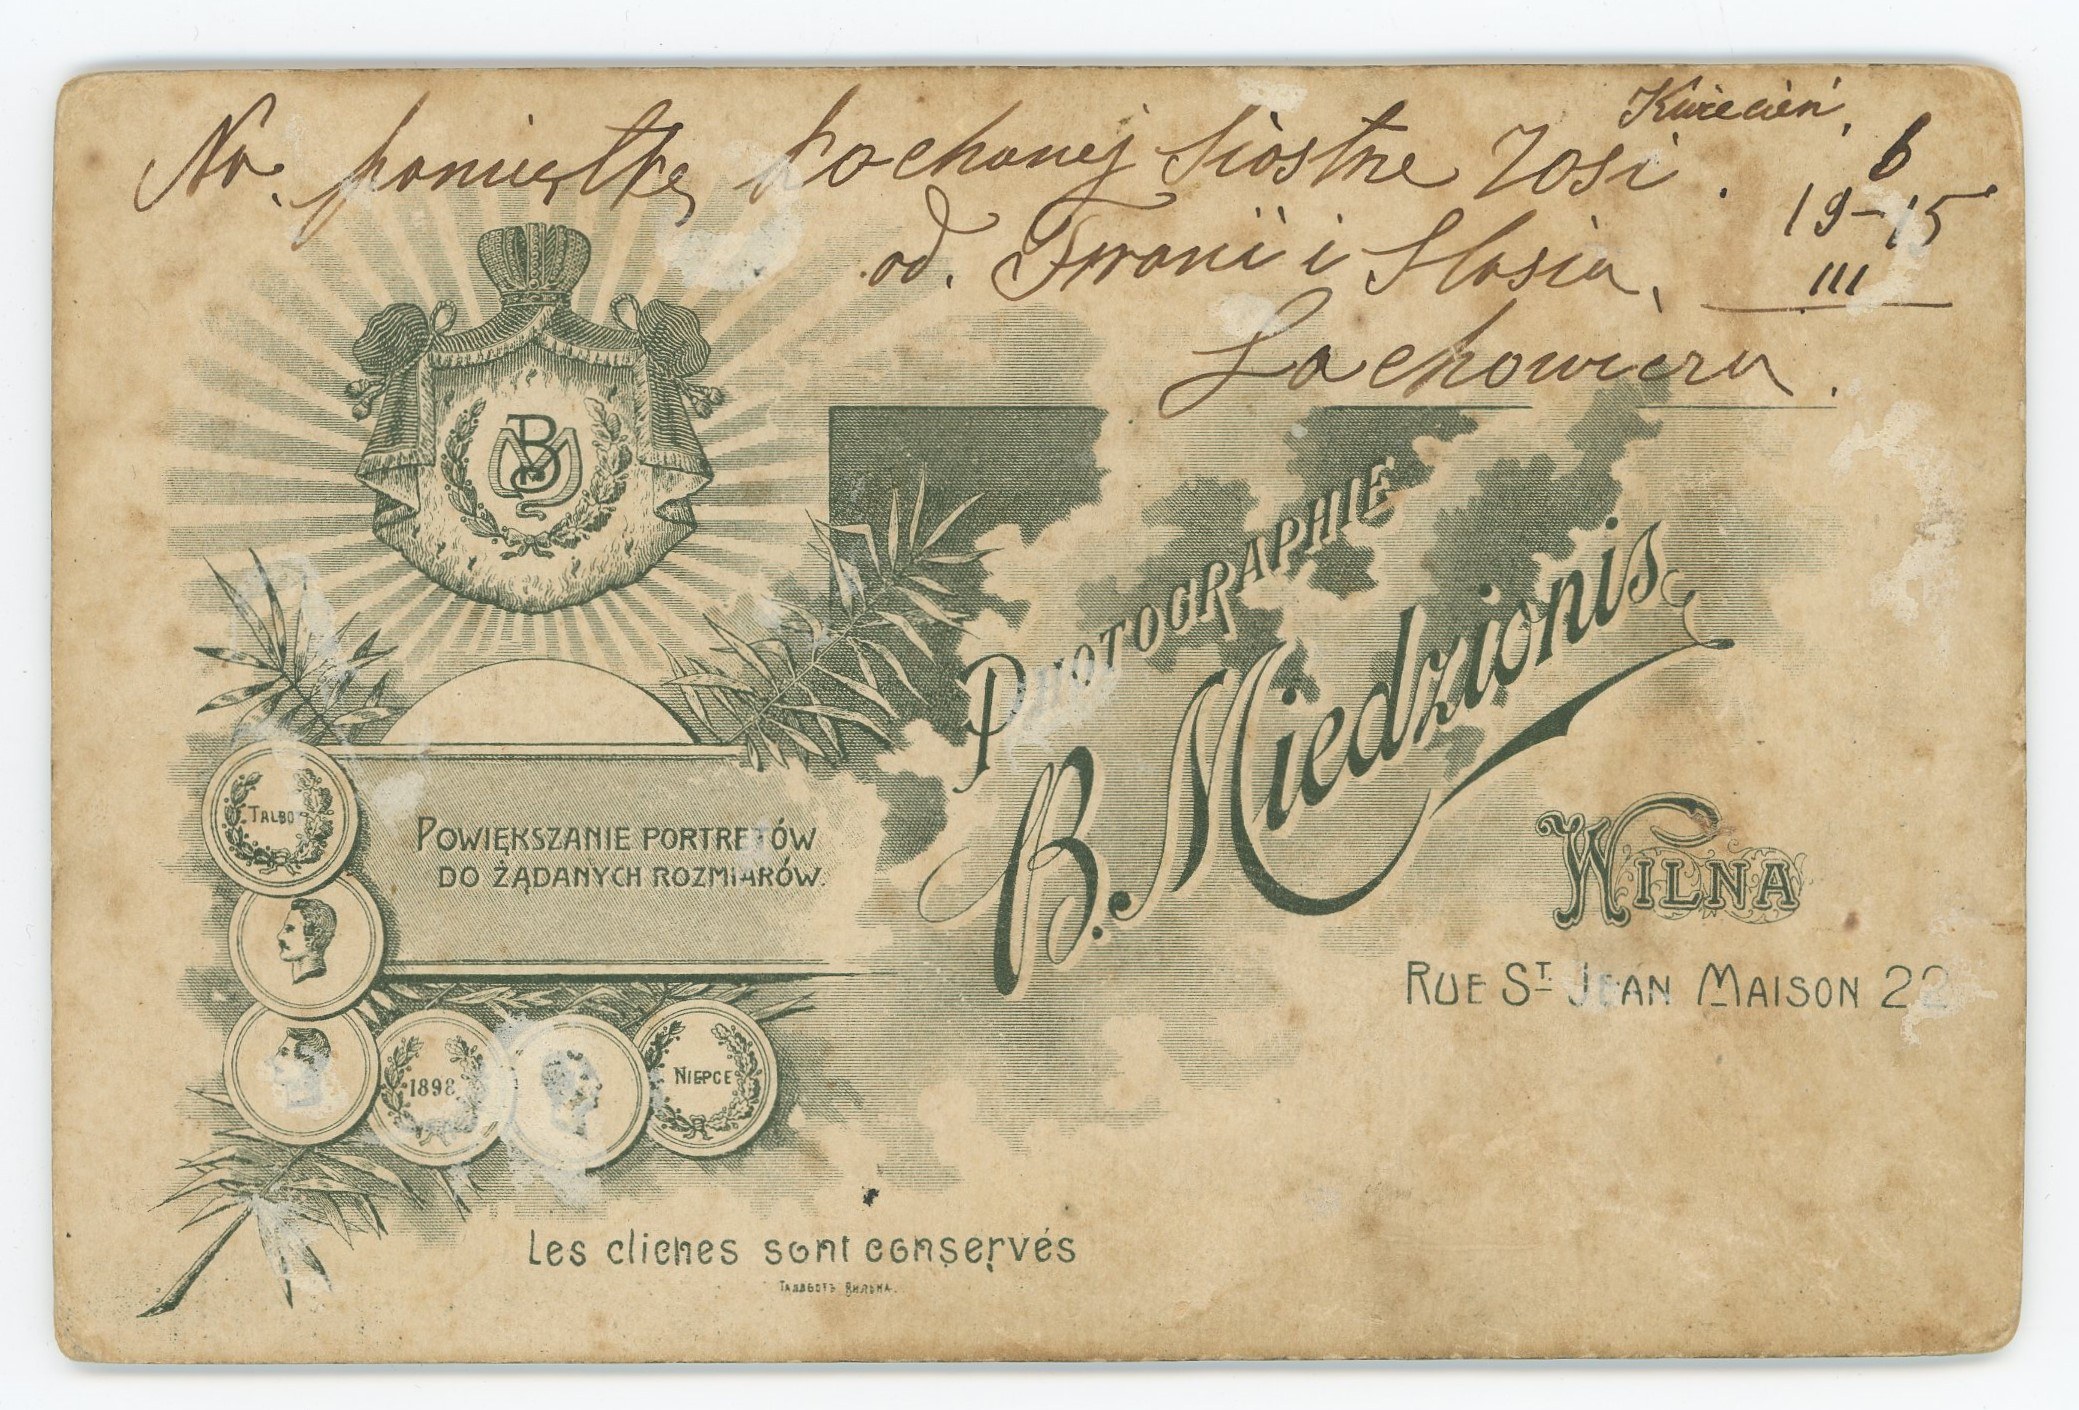 Kwiecień,
Na. pamiątkę kochanej siostrze Zosi. 6
19-15
od. Frani i Stasia, III
Lachowicza.
BM
PHOTOGRAPHIE
B. Miedzionis
WILNA
RUE ST JEAN MAISON 22
TALBOT
POWIĘKSZANIE PORTRETÓW
DO ŻĄDANYCH ROZMIARÓW.
1898
NIEPCE
Les cliches sont conservés
Талботъ Вильна.